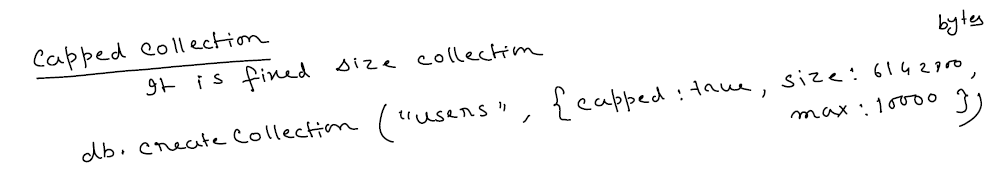 Capped Collection
It is fixed size collection
bytes
db. createCollection ("users", { capped : true, size : 6142800,
max : 10000 })